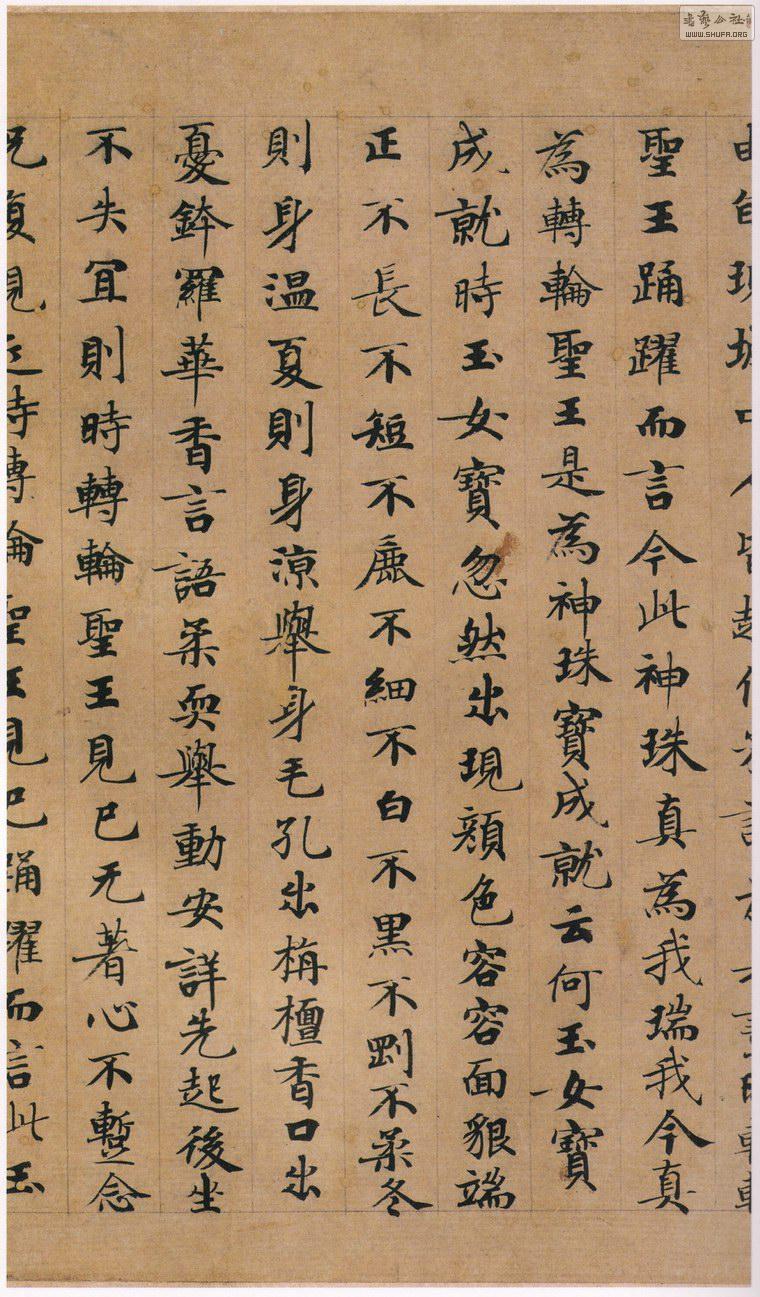 書藝公社
WWW.SHUFA.ORG
現城中人皆起作
聖王踊躍而言今此神珠真為我瑞我今真
為轉輪聖王是為神珠寶成就云何玉女寶
成就時玉女寶忽然出現顏色容容面貌端
正不長不短不麁不細不白不黑不剛不柔冬
則身温夏則身涼舉身毛孔出栴檀香口出
憂鉢羅華香言語柔耎舉動安詳先起後坐
不失宜則時轉輪聖王見已无著心不暫念
況復親近時轉輪聖王見已踊躍而言此玉